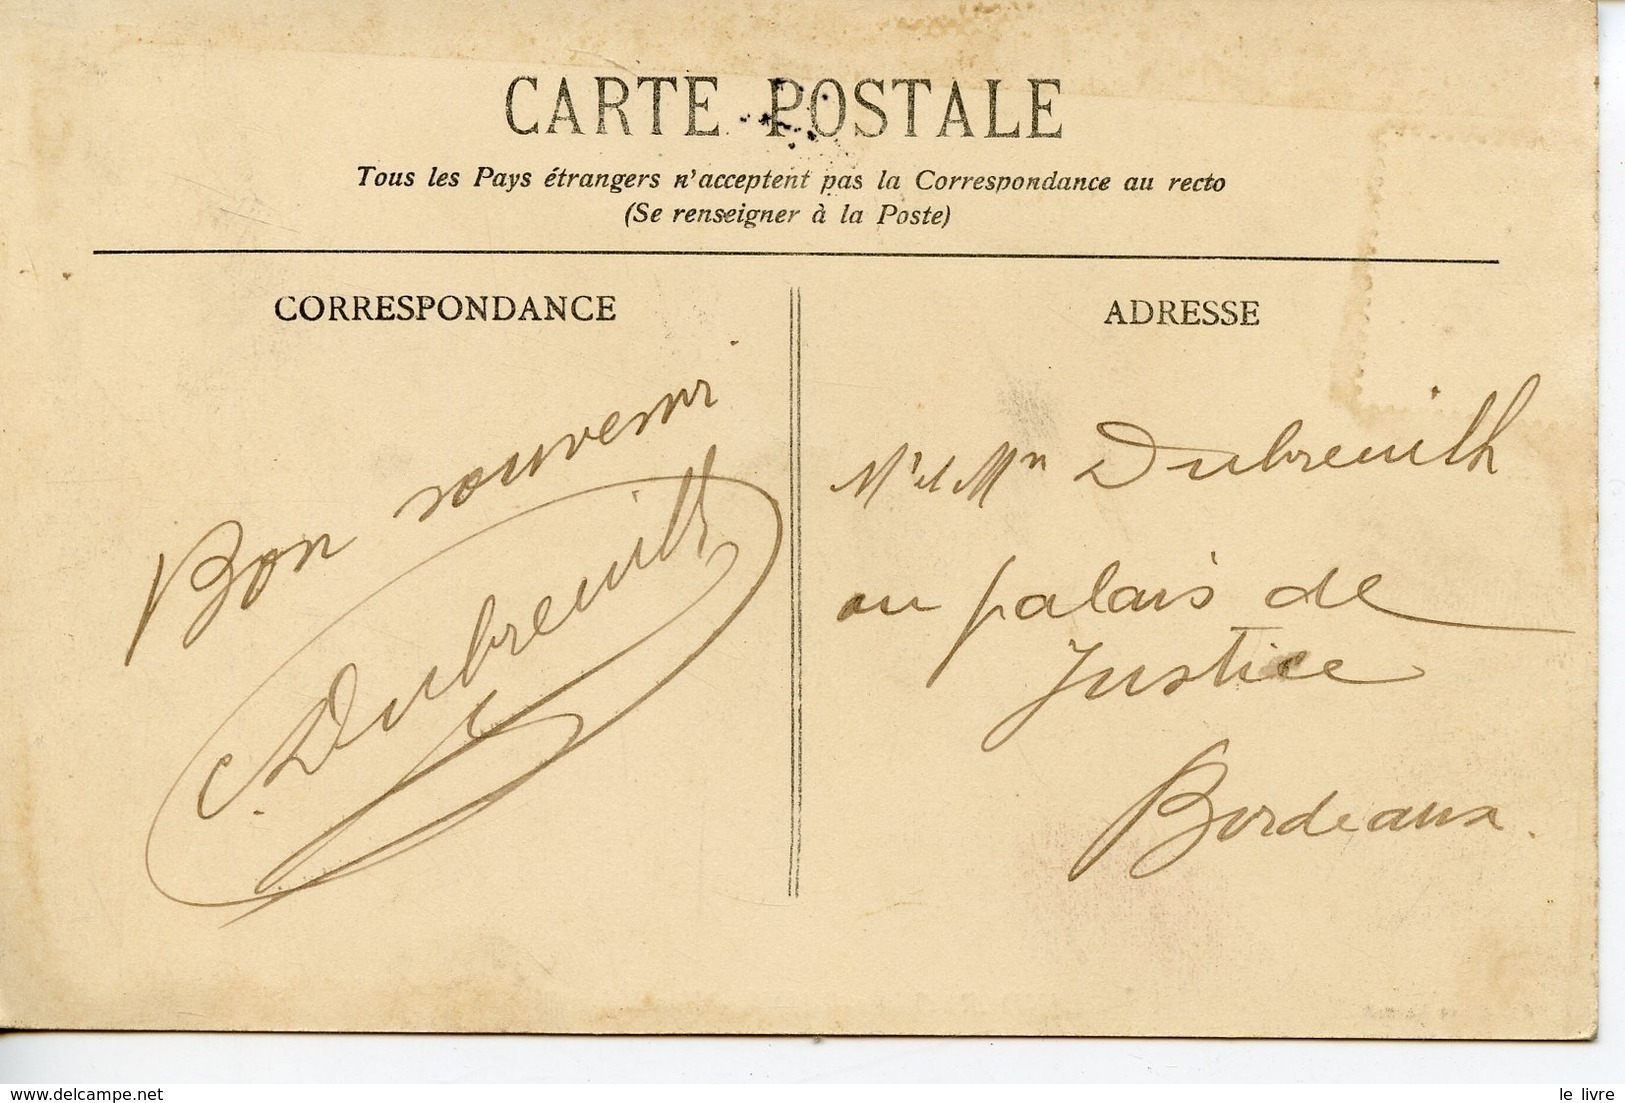 CARTE POSTALE
Tous les Pays étrangers n'acceptent pas la Correspondance au recto
(Se renseigner à la Poste)
CORRESPONDANCE
Bon souvenir
C. Dubreuilh
ADRESSE
Mr et Mme Dubreuilh
au palais de
Justice
Bordeaux.
le livre